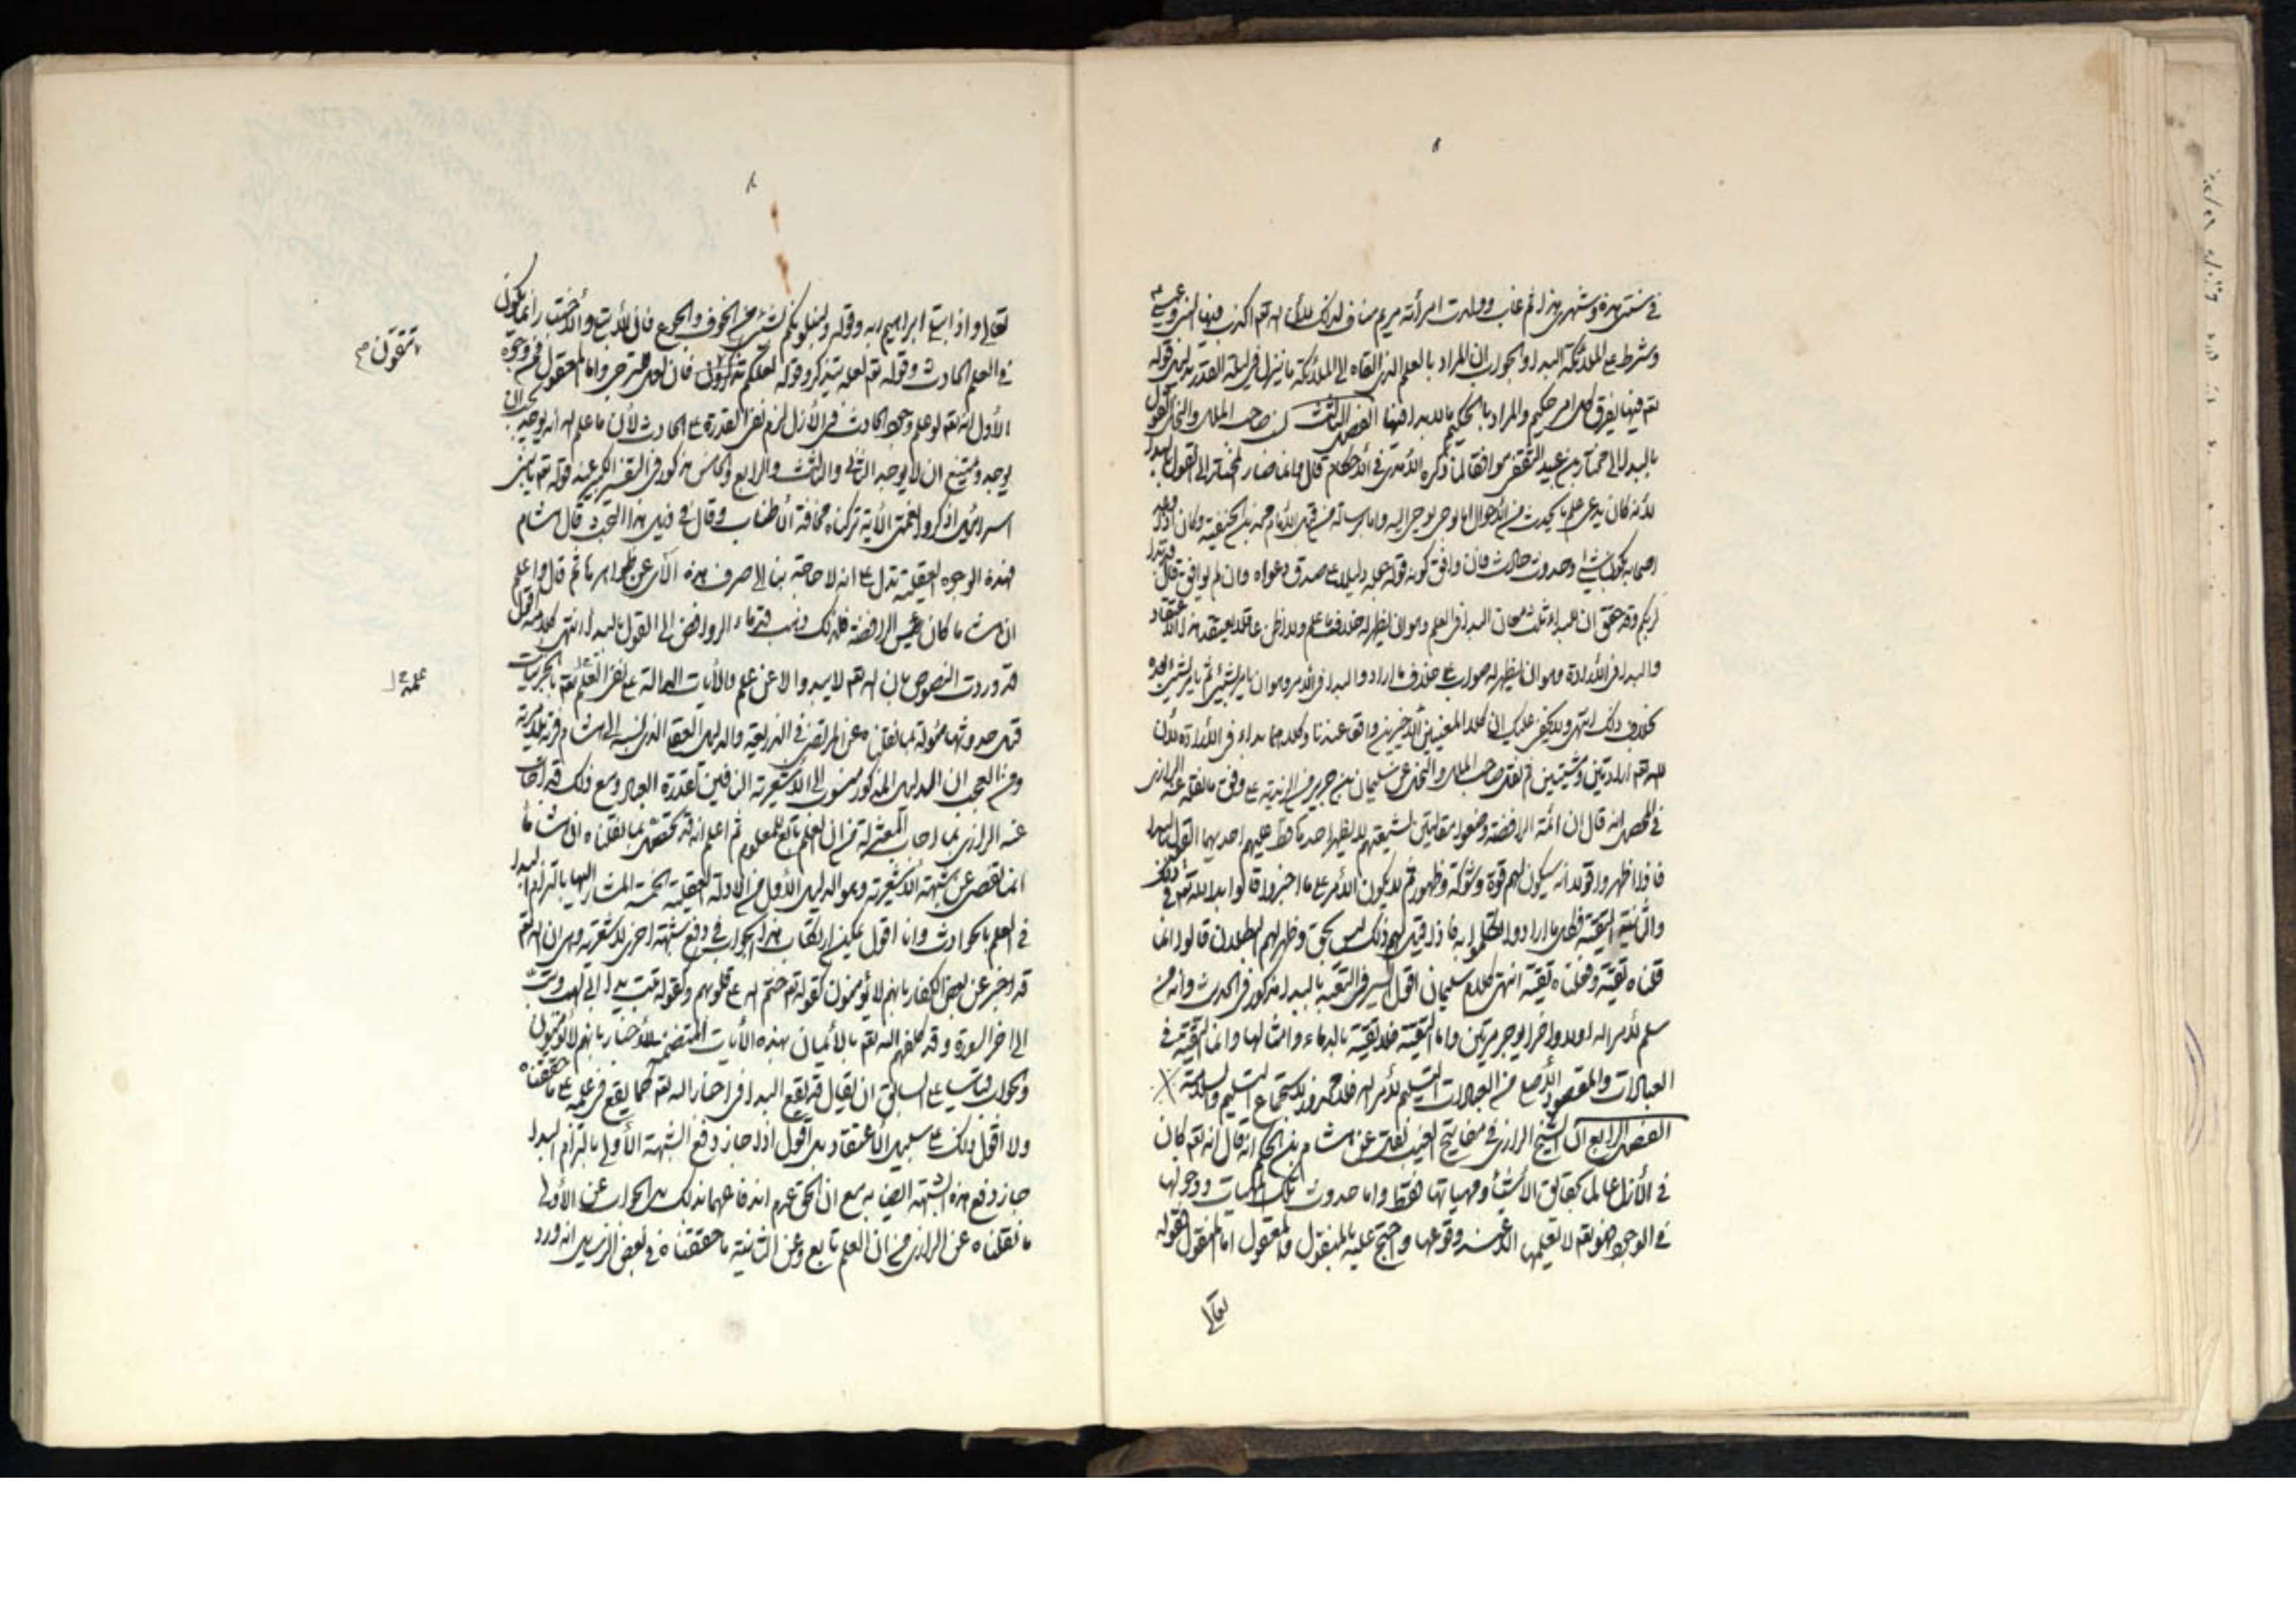 في سنتي هذه وشهري هذا ثم غاب وولدت امرأته مريم مناف لذلك لأن الله تعالى اكذب فيها
وشرط على الملائكة البدا والجواب ان المراد بالعلم الذي القاه الى الملائكة ما ينزل في ليلة القدر بدليل قوله
تعم فيها يفرق كل امر حكيم والمراد بالحكيم ما لا بدا فيها الفصل الثالث نسب صاحب الملل والنحل القول
بالبدا الى مختار بن عبيد الثقفي موافقا لما ذكره الآمدي في الأحكام قال وانما صار المختار الى القول بالبدا
لأنه كان يدعي علم ما يحدث من الأحوال اما بوحي يوحى اليه واما برسالة من قبل الأمام محمد بن الحنفية وكان اذا وعد
اصحابه بكون شيء وحدوث حادث فان وافق كونه قوله جعله دليلا على صدق دعواه وان لم يوافق قال قد بدا
لربكم وقد حقق ان للبدا ثلث معان البدا في العلم وهو ان يظهر له خلاف ما علم ولا اظن عاقلا يعتقد هذا الاعتقاد
والبدا في الأرادة وهو ان يظهر له صواب على خلاف ما اراد والبدا في الأمر وهو ان يامر بشيء ثم يامر بشيء بعده
بخلاف ذلك انتهى ولا يخفى عليك ان كلا المعنيين الأخيرين واقع عندنا وكلاهما بداء في الأرادة لأن
لله تعم ارادتين ومشيتين ثم نقل صاحب الملل والنحل عن سليمان بن جرير من الزيدية على وفق ما نقله عنه الرازي
في المحصل انه قال ان ائمة الرافضة وضعوا مقالتين لشيعتهم لا يظهر احد بهما قط عليهم احديهما القول بالبدا
فاذا اظهروا قولا انه سيكون لهم قوة وشوكة وظهور ثم لا يكون الأمر على ما اخبروا قالوا بدا لله تعم في ذلك
والثانية التقية فكل ما ارادوا تكلموا به فاذا قيل لهم ذلك ليس بحق وظهر لهم البطلان قالوا انما
قلناه تقية وفعلناه تقية انتهى كلام سليمان اقول السر في التقية بالبدا مذكور في الحديث وانه من
سلم لأمر الله اولا واخرا يوجر مرتين واما التقية فلا تقية بالدماء وامثالها وانما التقية في
العبادات والمقصود الأصلي من العبادات التسليم لأمر الله فلا محذور لاستجماع التسليم والسلامة
الفصل الرابع ان الشيخ الرازي في مفاتيح الغيب نقل عن هشام بن الحكم انه قال انه تعم كان
في الأزل عالما بحقايق الأشياء ومهياتها فقط واما حدوث تلك المهيات ودخولها
في الوجود فهو تعم لا يعلمها الا عند وقوعها واحتج عليه بالمنقول والمعقول اما المنقول فقوله
تعالى
تعالى واذ ابتلى ابراهيم ربه وقوله ولنبلونكم بشيء من الخوف والجوع فان الأبتلاء والأختبار انما يكون
في العلم الحادث وقوله تعم لعله يتذكر وقوله لعلكم تذكرون فان لعل للترجي واما المعقول فمن وجوه
تتقون صح
الأول انه تعم لو علم وجود الحادث في الأزل لزم نفي القدرة على الحادث لأن ما علم الله انه يوجد يجب ان
يوجد ويمتنع ان لا يوجد الثاني والثالث والرابع والخامس مذكور في التفسير الكبير عند قوله تعم يا بني
اسرائيل اذكروا نعمتي الآية تركناه مخافة الأطناب وقال في ذيل هذا البحث قال هشام
فهذه الوجوه العقلية تدل على انه لا حاجة بنا الى صرف هذه الآي عن ظواهرها ثم قال واعلم
ان هشاما كان رئيس الرافضة فلذلك ذهب قدماء الروافض الى القول بالبدا انتهى كلامه اقول
قد وردت النصوص بان الله تعم لا يبدو الا عن علم والآيات الدالة على نفي العلم بالجزئيات
علمه
قبل حدوثها مؤولة بما نقلناه عن المرتضى في الذريعة والدليل العقلي الذي نسبه الى هشام
ومن العجب ان الدليل المذكور منسوب الى الأشعرية النافين لقدرة العباد ومع ذلك قد اجاب
عنه الرازي بما اجاب المعتزلة من ان العلم تابع للمعلوم ثم اعلم انه قد تحصل بما نقلناه ان هشاما
انما تفصى عن شبهة الأشعرية وهو الدليل الأول من الأدلة العقلية الخمسة المشار اليها بالتزام البدا
في العلم بالحوادث وانا اقول يمكن ارتكاب هذا الجواب في دفع شبهة اخرى للأشعرية وهي ان الله تعم
قد اخبر عن بعض الكفار بانهم لا يؤمنون كقوله تعم ختم الله على قلوبهم وكقوله تبت يدا ابي لهب وتب
الى اخر السورة وقد كلفهم الله تعم بالأيمان بهذه الآيات المتضمنة للأخبار بانهم لا يؤمنون
والجواب قياسا على السابق ان يقال قد يقع البدا في اخبار الله تعم كما يقع في علمه على ما حققناه
ولا اقول ذلك على سبيل الأعتقاد بل اقول اذا جاز دفع الشبهة الأولى بالتزام البدا
جاز دفع هذه الشبهة ايضا به مع ان الحق عدم اندفاعهما بذلك بل الجواب عن الأولى
ما نقلناه عن الرازي من ان العلم تابع وعن الثانية ما حققناه في بعض الرسايل انه ورد